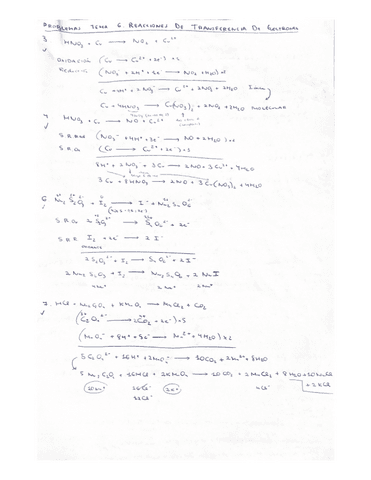 PROBLEMAS TEMA 6 REACCIONES DE TRANSFERENCIA DE ELECTRONES
3 HNO₃ + Cu → NO₂ + Cu²⁺
OXIDACIÓN (Cu → Cu²⁺ + 2e⁻)
(NO₃⁻ + 2H⁺ + 1e⁻ → NO₂ + H₂O)·2
Cu + 4H⁺ + 2NO₃⁻ → Cu²⁺ + 2NO₂ + 2H₂O
Cu + 4HNO₃ → Cu(NO₃)₂ + 2NO₂ + 2H₂O MOLECULAR
4 HNO₃ + Cu → NO + Cu²⁺
S.R.RED (NO₃⁻ + 4H⁺ + 3e⁻ → NO + 2H₂O)
S.R.O (Cu → Cu²⁺ + 2e⁻)·3
8H⁺ + 2NO₃⁻ + 3Cu → 2NO + 3Cu²⁺ + 4H₂O
3Cu + 8HNO₃ → 2NO + 3Cu(NO₃)₂ + 4H₂O
6 Na₂S₂O₃ + I₂ → I⁻ + Na₂S₄O₆
S.R.O 2S₂O₃²⁻ → S₄O₆²⁻ + 2e⁻
S.R.R I₂ + 2e⁻ → 2I⁻
2S₂O₃²⁻ + I₂ → S₄O₆²⁻ + 2I⁻
2Na₂S₂O₃ + I₂ → Na₂S₄O₆ + 2NaI
7. HCl + Na₂C₂O₄ + KMnO₄ → MnCl₂ + CO₂
(C₂O₄²⁻ → 2CO₂ + 2e⁻)·5
(MnO₄⁻ + 8H⁺ + 5e⁻ → Mn²⁺ + 4H₂O)·2
5C₂O₄²⁻ + 16H⁺ + 2MnO₄⁻ → 10CO₂ + 2Mn²⁺ + 8H₂O
5Na₂C₂O₄ + 16HCl + 2KMnO₄ → 10CO₂ + 2MnCl₂ + 8H₂O + 10NaCl
+ 2KCl